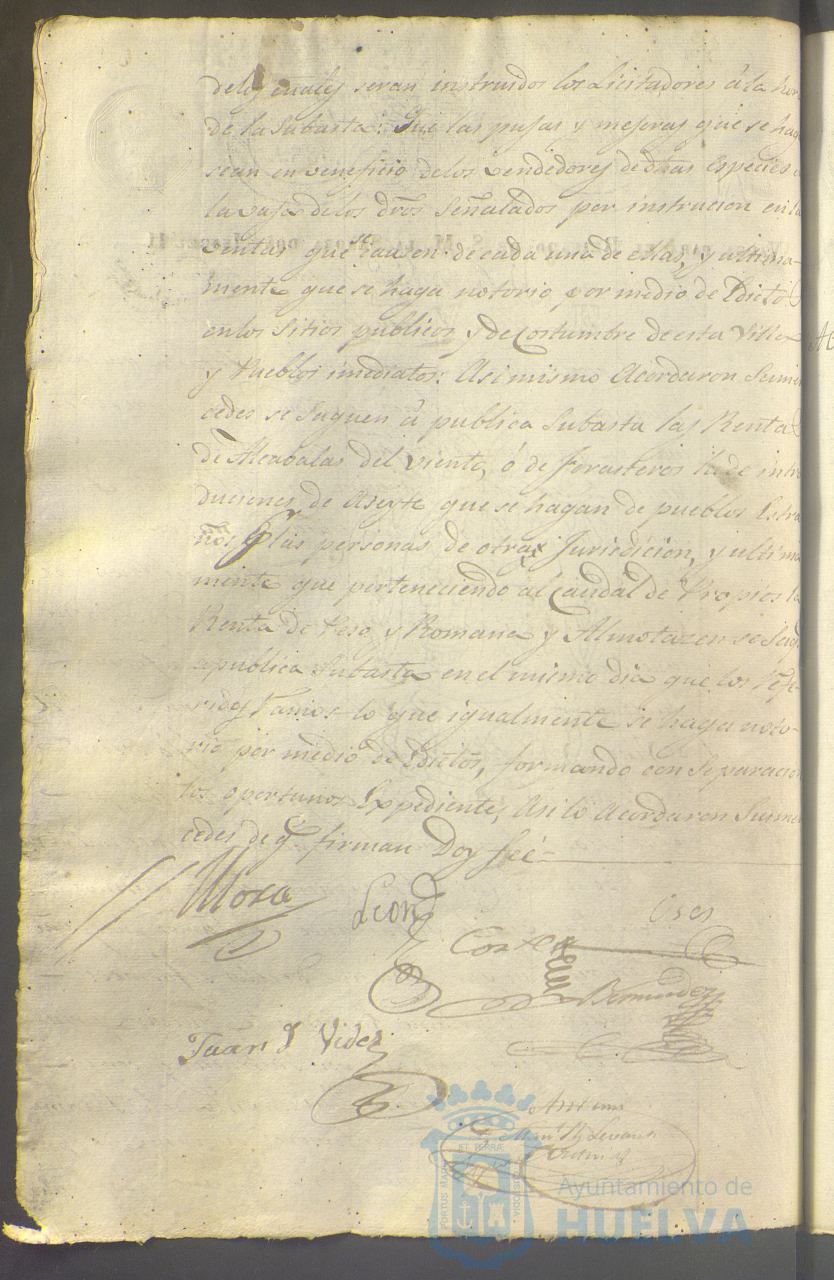 delos cuales seran instruidos los Licitadores á la hor
de la Subasta: Que las pujas y mejoras que se hag
sean en veneficio delos vendedores de dhas especies
la vaja de los dros Señalados por instrucion en la
ventas que causen de cada una de estas, y ultima-
mente que se haga notorio por medio de Edicto
en los Sitios publicos y de Costumbre de esta Villa
y Pueblos imediatos: Asi mismo Acordaron Sumer
cedes se Saquen á publica Subasta las Renta
de Alcabalas del Viento, ó de forasteros la de intro
duciones de Aseyte que se hagan de pueblos Estra
ños las personas de otra Jurisdicion, y ultima
mente que perteneciendo al Caudal de Propios la
Renta de Peso y Romana y Almotazen se Saq
a publica Subasta en el mismo dia que los refe-
ridos Ramos lo que igualmente se haga noto-
rio por medio de Edictos, formando con Separacion
los oportunos Expediente, Asi lo Acordaron Sumer
cedes de q. firman Doy feé
Mora
Leon
Oses
Cortes
Bermudez
Juan J Vides
Ante mi
PORTUS MARIS ET TERRÆ CUSTODIA
Ayuntamiento de
HUELVA